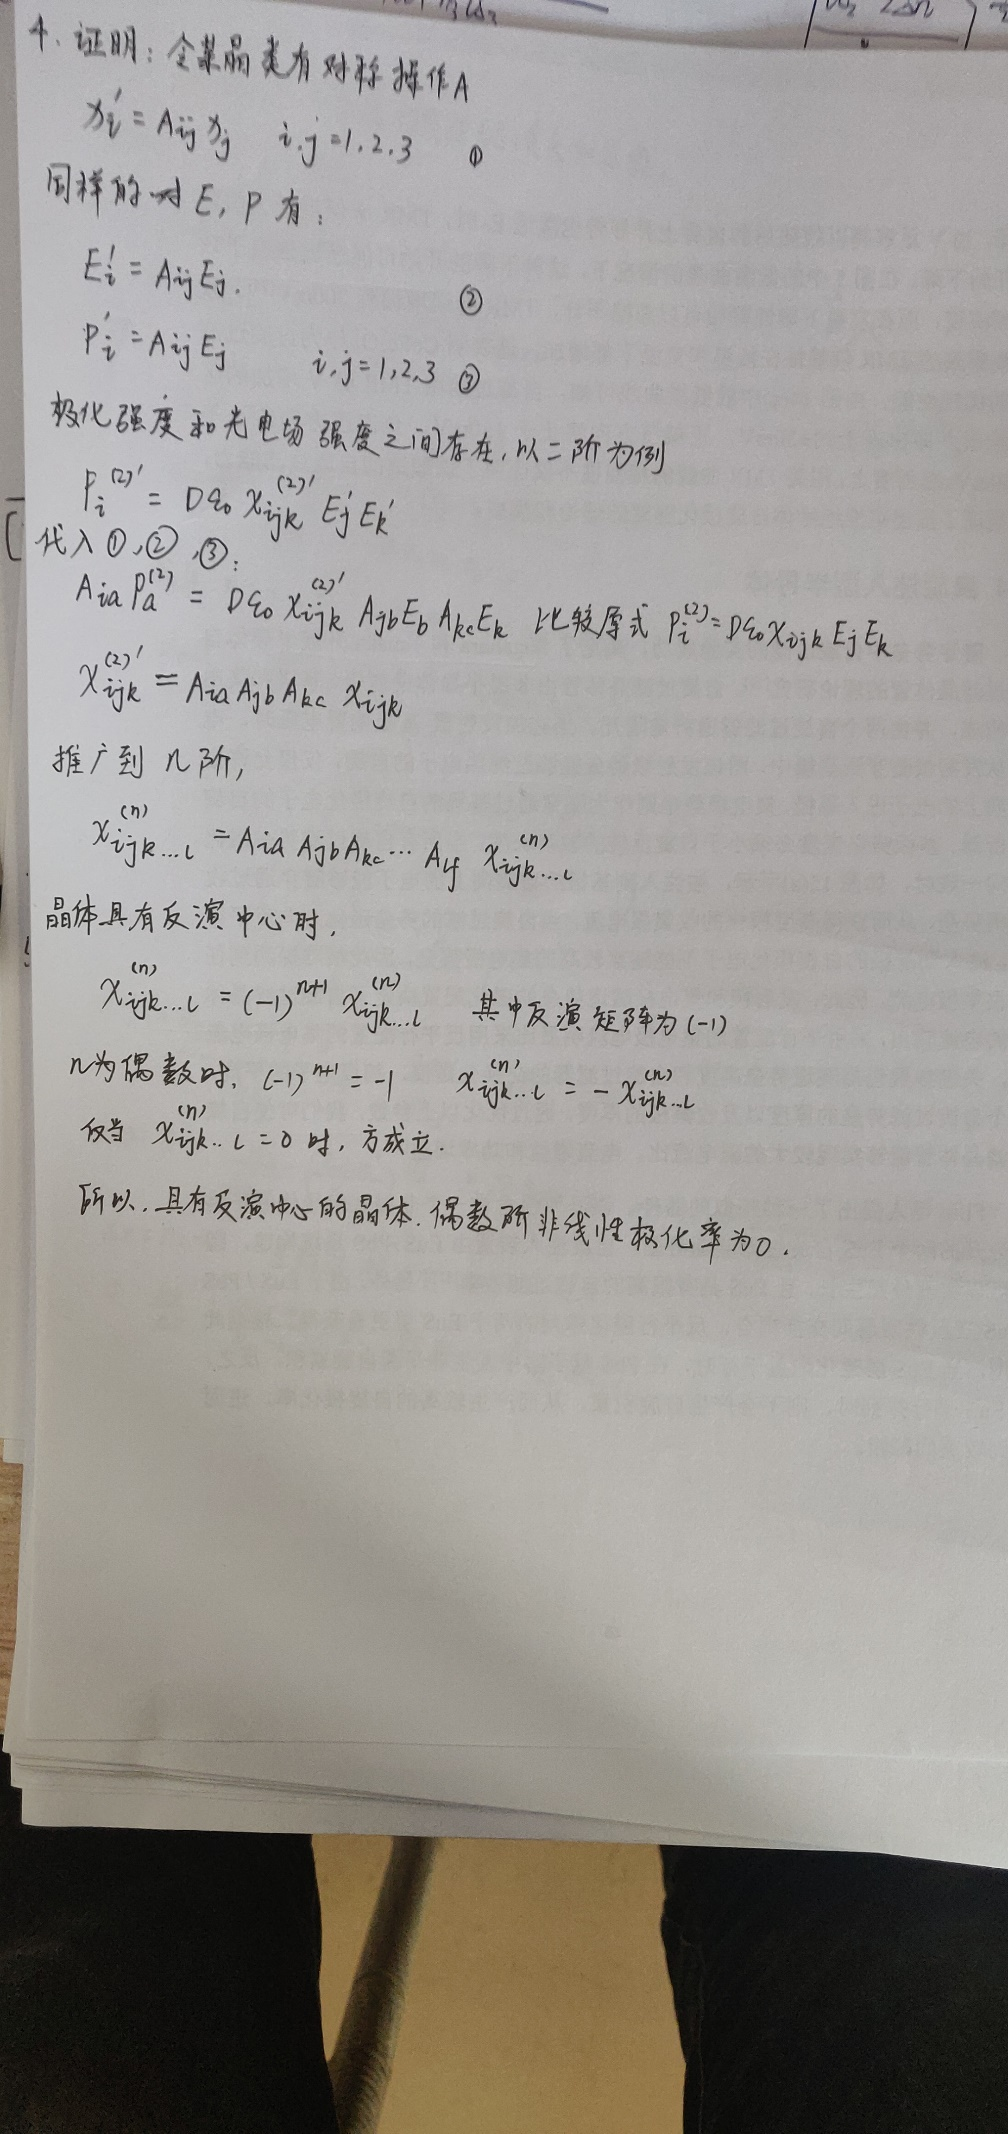 4. 证明：令某晶类有对称操作A
x_i' = A_{ij} x_j   i.j=1.2.3   ①
同样的对E, P有：
E_i' = A_{ij} E_j.   ②
P_i' = A_{ij} E_j   i,j=1,2,3   ③
极化强度和光电场强度之间存在, 以二阶为例
P_i^{(2)'} = Dε_0 χ_{ijk}^{(2)'} E_j' E_k'
代入①、②、③：
A_{ia} P_a^{(2)} = Dε_0 χ_{ijk}^{(2)'} A_{jb} E_b A_{kc} E_k   比较原式 P_i^{(2)} = Dε_0 χ_{ijk} E_j E_k
χ_{ijk}^{(2)'} = A_{ia} A_{jb} A_{kc} χ_{ijk}
推广到 n 阶,
χ_{ijk...l}^{(n)} = A_{ia} A_{jb} A_{kc} ... A_{lf} χ_{ijk...l}^{(n)}
晶体具有反演中心时,
χ_{ijk...l}^{(n)} = (-1)^{n+1} χ_{ijk...l}^{(n)}   其中反演矩阵为(-1)
n为偶数时, (-1)^{n+1} = -1   χ_{ijk...l}^{(n)} = - χ_{ijk...l}^{(n)}
仅当 χ_{ijk...l}^{(n)} = 0 时, 方成立.
所以, 具有反演中心的晶体, 偶数阶非线性极化率为0.